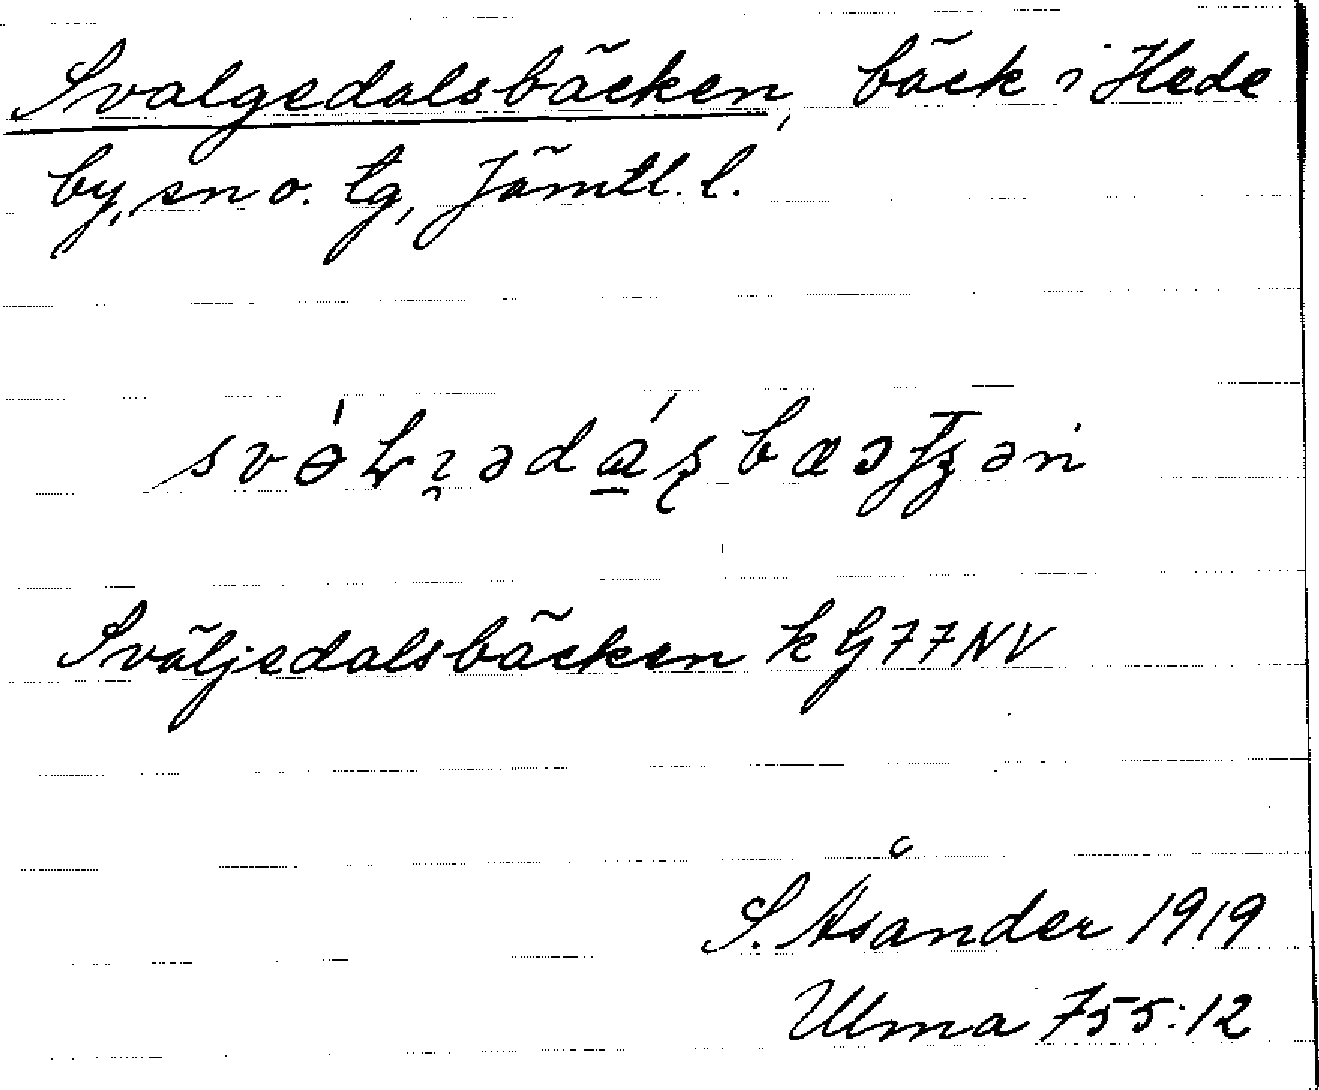 Svalgedalsbäcken, bäck i Hede
by, sn o. tg, Jämtl. l.
Sväljedalsbäcken k G77NV
S. Åsander 1919
Ulma 755:12